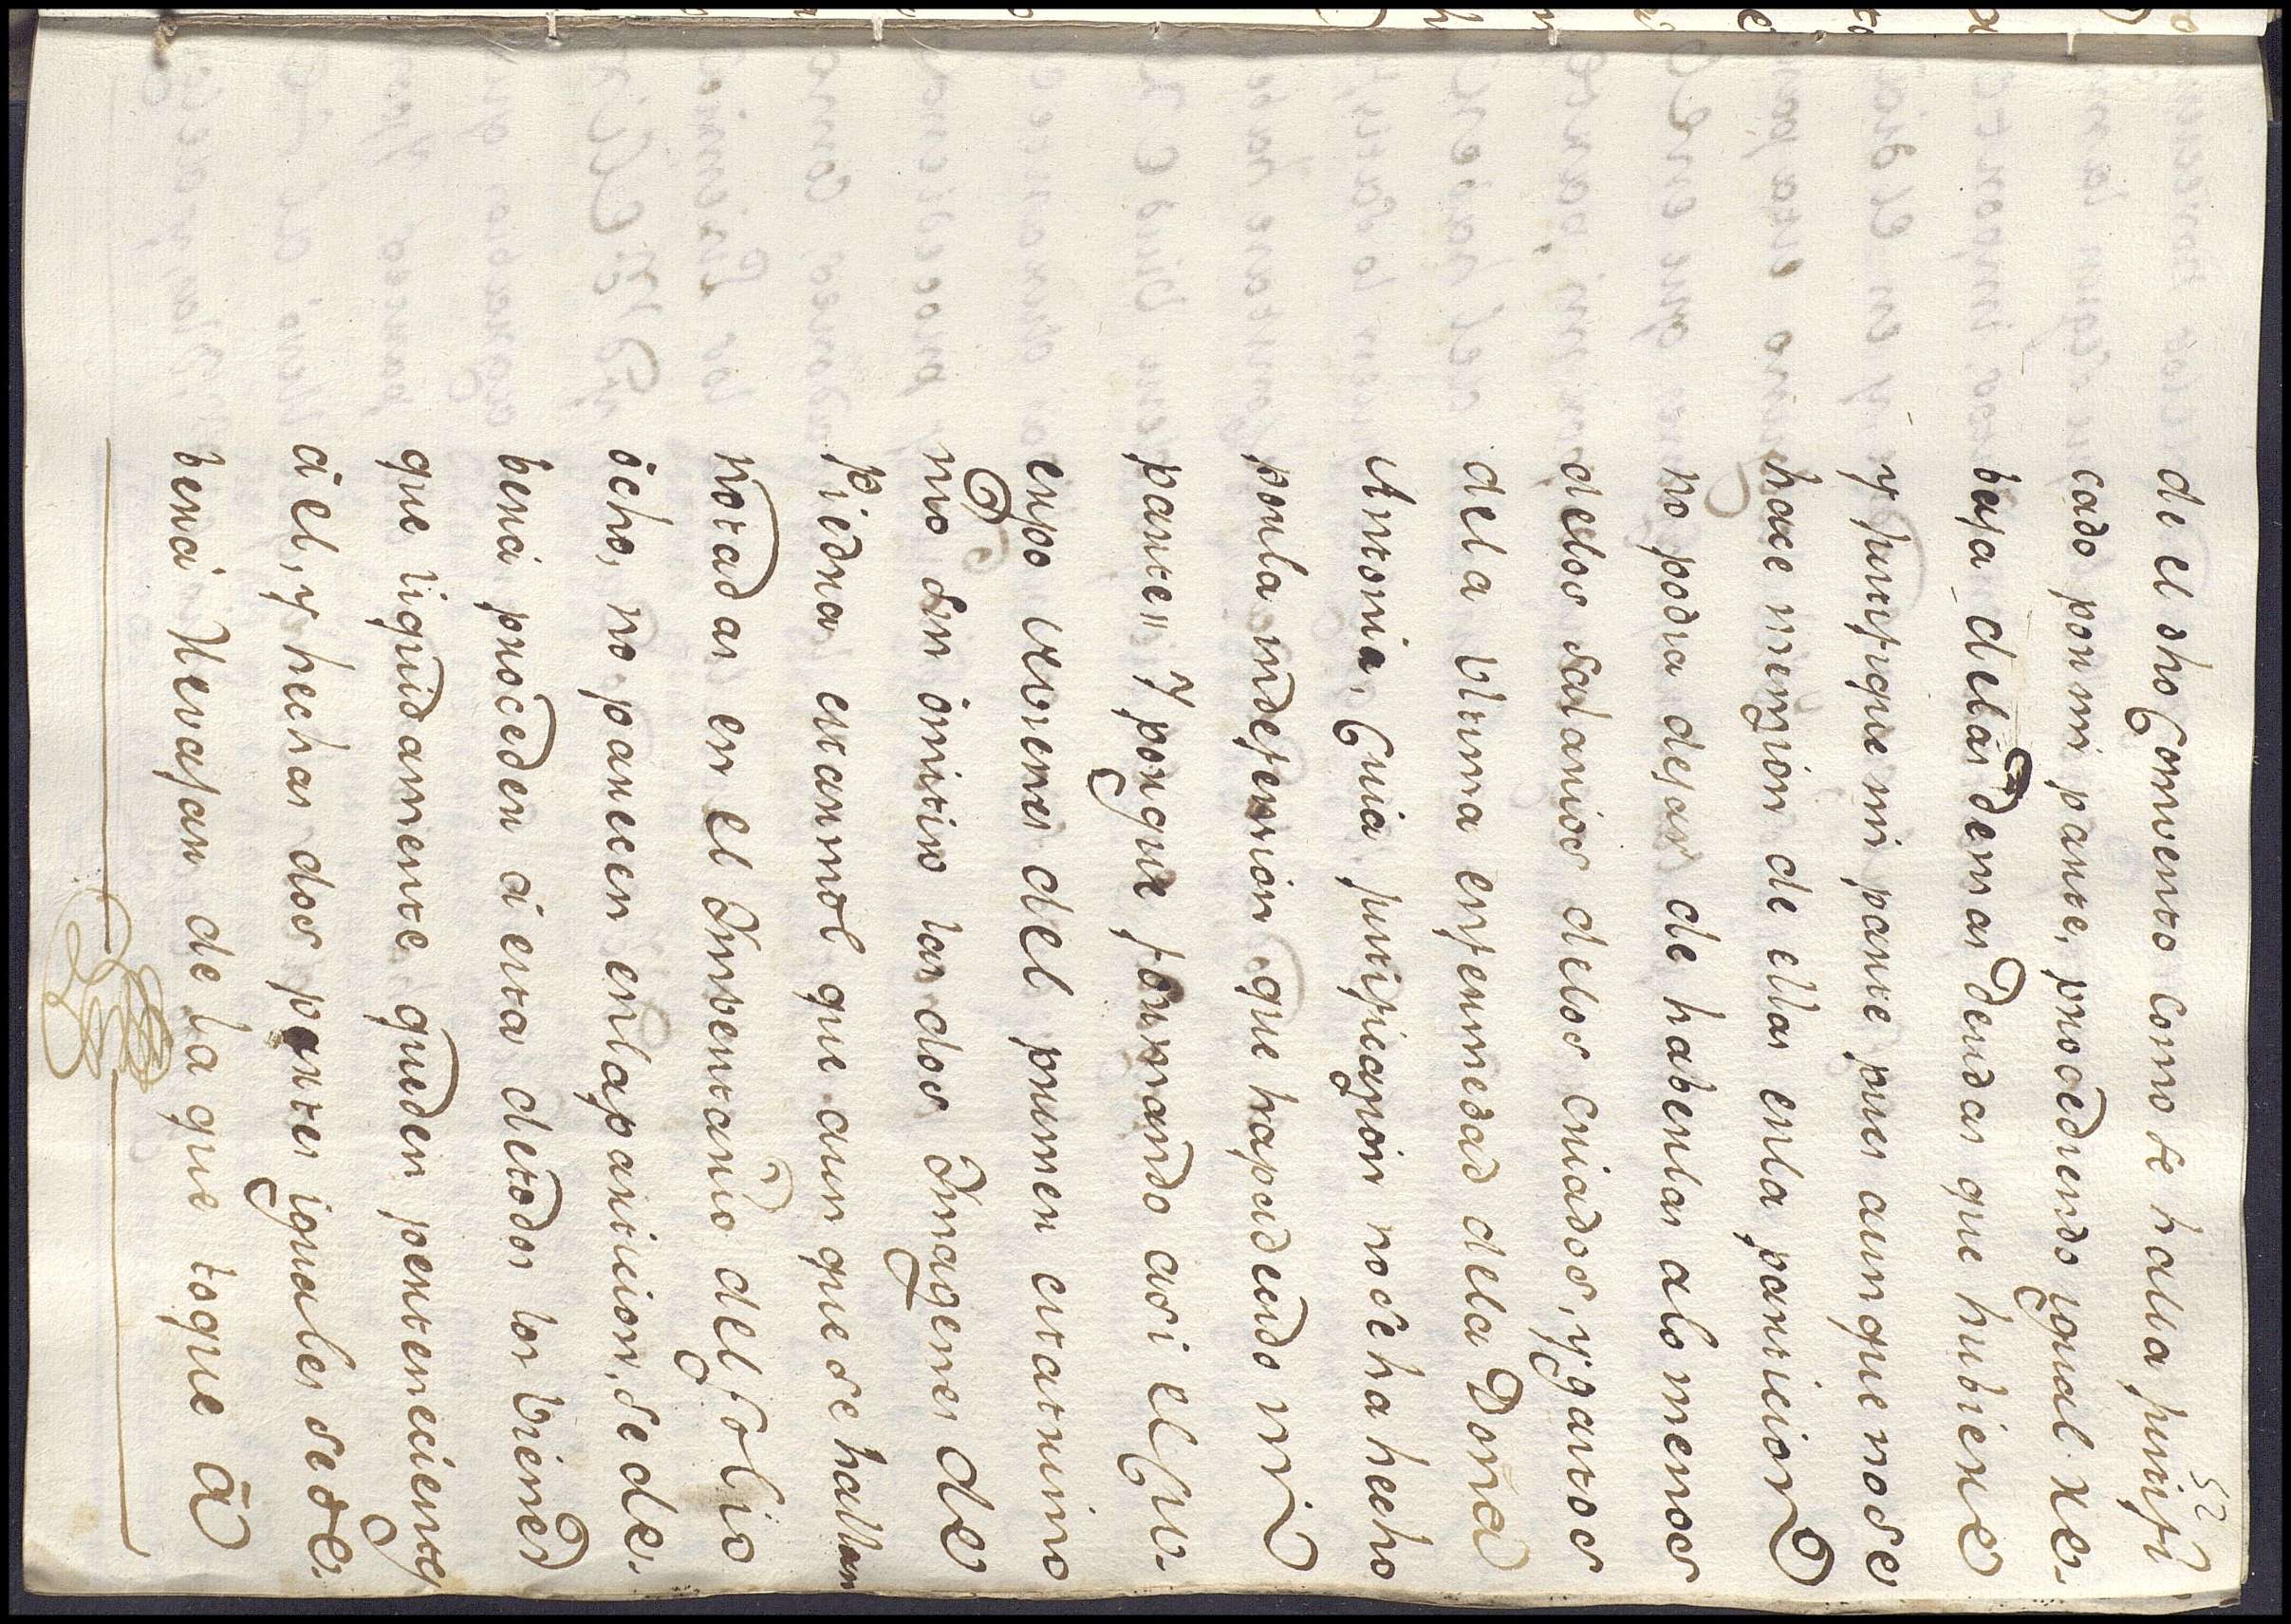 52
de el dho Combento como se halla justifi
cado por mi parte, procediendo ygual re-
baja delas demas deudas que hubiere
y justifique mi parte pues aunque nose
hace menzion de ellas enla particion
no podia dejar de haberlas alo menos
delos salarios delos criados, y gastos
dela vltima enfermedad dela Dona
Antonia, Cuia justificazon nose ha hecho
porla indefension que hapadecido mi
parte" Y porque formando asi el Cu-
erpo vbienes del primer extremo
no son omitiro las dos Imagenes de
Piedra marmol que aunque se hallan
notadas en el Inventario del folio
ocho, no parecen enlaparticion, se de-
bera proceder a esta detodos los bienes
que liquidamente queden pertenecientes
a el, y hechas dos partes iguales sede-
bera Revajar de la que toque â